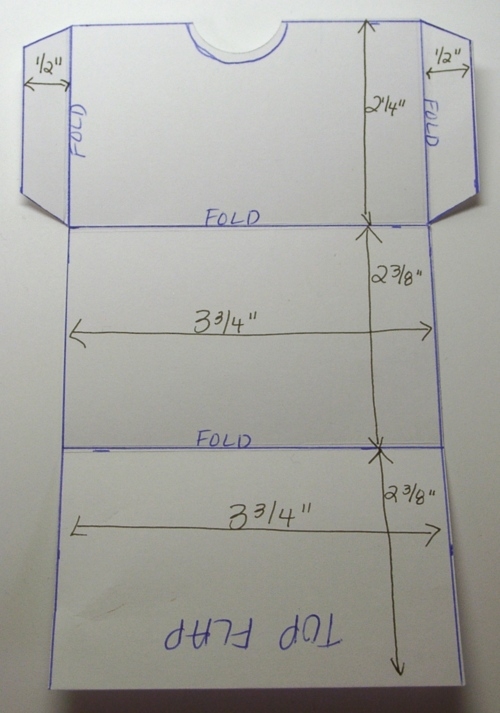 1/2"
1/2"
FOLD
2 1/4"
FOLD
FOLD
2 3/8"
3 3/4"
FOLD
2 3/8"
3 3/4"
TOP FLAP